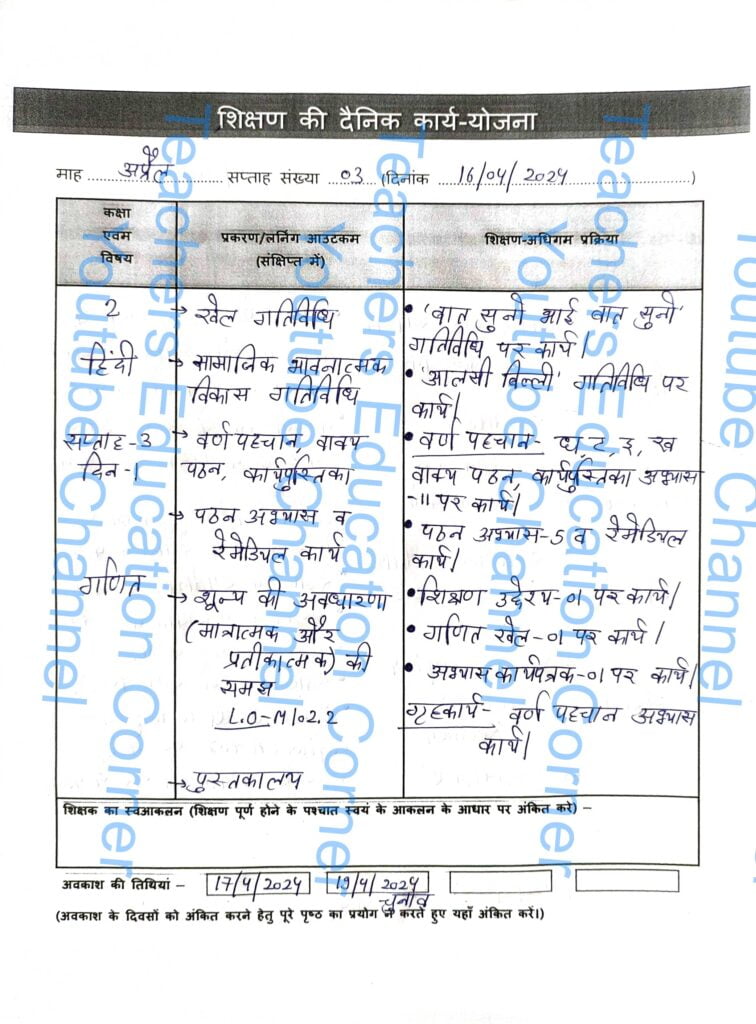 शिक्षण की दैनिक कार्य-योजना
माह अप्रैल सप्ताह संख्या 03 (दिनांक 16/04/2024)
कक्षा
एवम
विषय
प्रकरण/लर्निंग आउटकम
(संक्षिप्त में)
शिक्षण-अधिगम प्रक्रिया
2
हिंदी
सप्ताह-3
दिन-1
गणित
→ खेल गतिविधि
→ सामाजिक भावनात्मक
विकास गतिविधि
→ वर्ण पहचान, वाक्य
पठन, कार्यपुस्तिका
→ पठन अभ्यास व
रेमेडियल कार्य
→ शून्य की अवधारणा
(मात्रात्मक और
प्रतीकात्मक) की
समझ
L.O-M102.2
→ पुस्तकालय
• 'बात सुनो भाई बात सुनो'
गतिविधि पर कार्य।
• 'आलसी बिल्ली' गतिविधि पर
कार्य।
• वर्ण पहचान- घ, ट, इ, ख
वाक्य पठन, कार्यपुस्तिका अभ्यास
-11 पर कार्य।
• पठन अभ्यास-5 व रेमेडियल
कार्य।
• शिक्षण उद्देश्य-01 पर कार्य।
• गणित खेल-01 पर कार्य।
• अभ्यास कार्यपत्रक-01 पर कार्य।
गृहकार्य- वर्ण पहचान अभ्यास
कार्य।
शिक्षक का स्वआकलन (शिक्षण पूर्ण होने के पश्चात स्वयं के आकलन के आधार पर अंकित करे) –
अवकाश की तिथियां – 17/4/2024 19/4/2024
चुनाव
(अवकाश के दिवसों को अंकित करने हेतु पूरे पृष्ठ का प्रयोग न करते हुए यहाँ अंकित करें।)
Teachers Education Corner
Youtube Channel
Teachers Education Corner
Youtube Channel
Teachers Education Corner
Youtube Channel